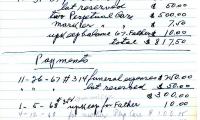 lot reserved $ 50.00
two Perpetual Care $ 500.00
marker $ 7.50
upkeep alabama 67. Father $ 10.00
total $ 817.50
Payments
11-26-67 #314 funeral expenses $250.00
" " " lot reserved $ 50.00
1-5-68 upkeep for Father 10.00